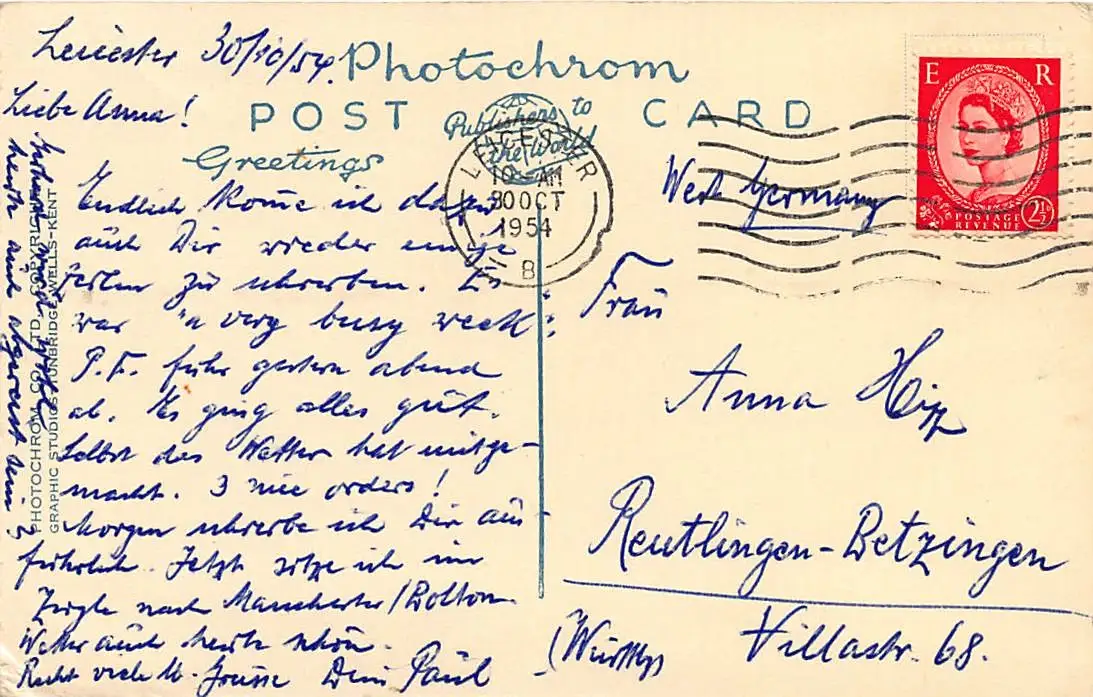 Leicester 30/10/54.
Photochrom
POST CARD
Publishers to
the World
Greetings
Liebe Anna!
Endlich komme ich dazu
auch Dir wieder einige
Zeilen zu schreiben. Es
war "a very busy week".
P.F. fuhr gestern abend
ab. Es ging alles gut.
Selbst das Wetter hat mitge-
macht. 3 nice orders!
Morgen schreibe ich Dir aus-
führlich. Jetzt sitze ich im
Zuge nach Manchester/Bolton.
Wetter auch heute schön.
Recht viele h. Grüsse Dein Paul
heute auch abgereist sein
PHOTOCHROM CO. LTD. COPYRIGHT
GRAPHIC STUDIOS TUNBRIDGE WELLS-KENT
LEICESTER
10 - AM
30 OCT
1954
B
E R
POSTAGE
REVENUE
2½
West Germany
Frau
Anna Hipp
Reutlingen-Betzingen
(Württbg)
Villastr. 68.